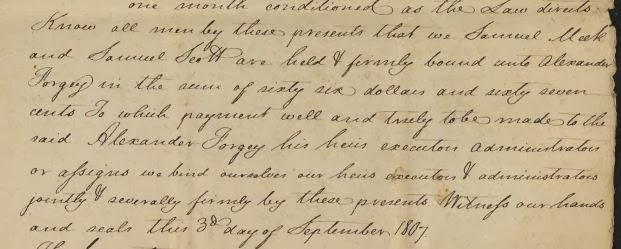 one month conditioned as the Law directs.
Know all men by these presents that we Samuel Meek
and Samuel Scott are held & firmly bound unto Alexander
Forgey in the sum of sixty six dollars and sixty seven
cents To which payment well and truely to be made to the
said Alexander Forgey his heirs executors administrators
or assigns we bind ourselves our heirs executors & administrators
jointly & severally firmly by these presents. Witness our hands
and seals this 3d day of September 1807.